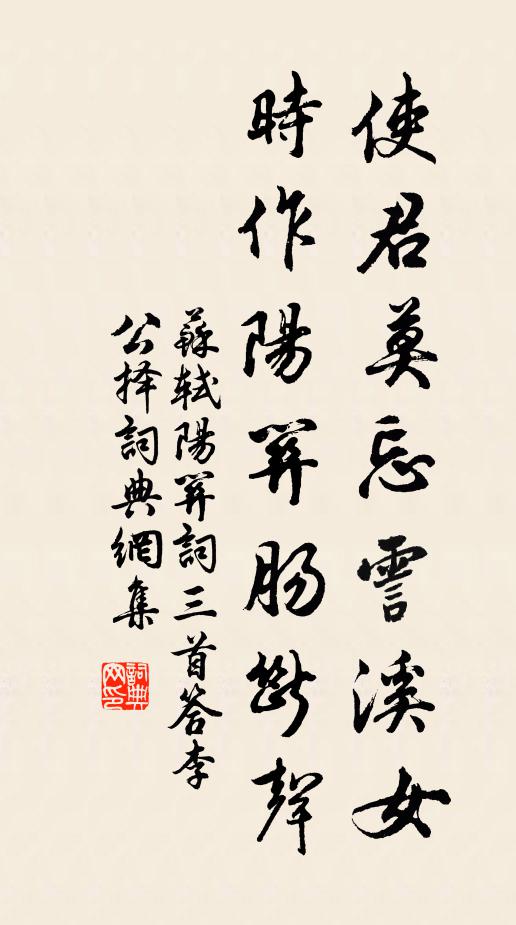 使君莫忘霅溪女
時作陽關腸斷聲
蘇軾陽關詞三首答李
公择詞典網集
詞典网印